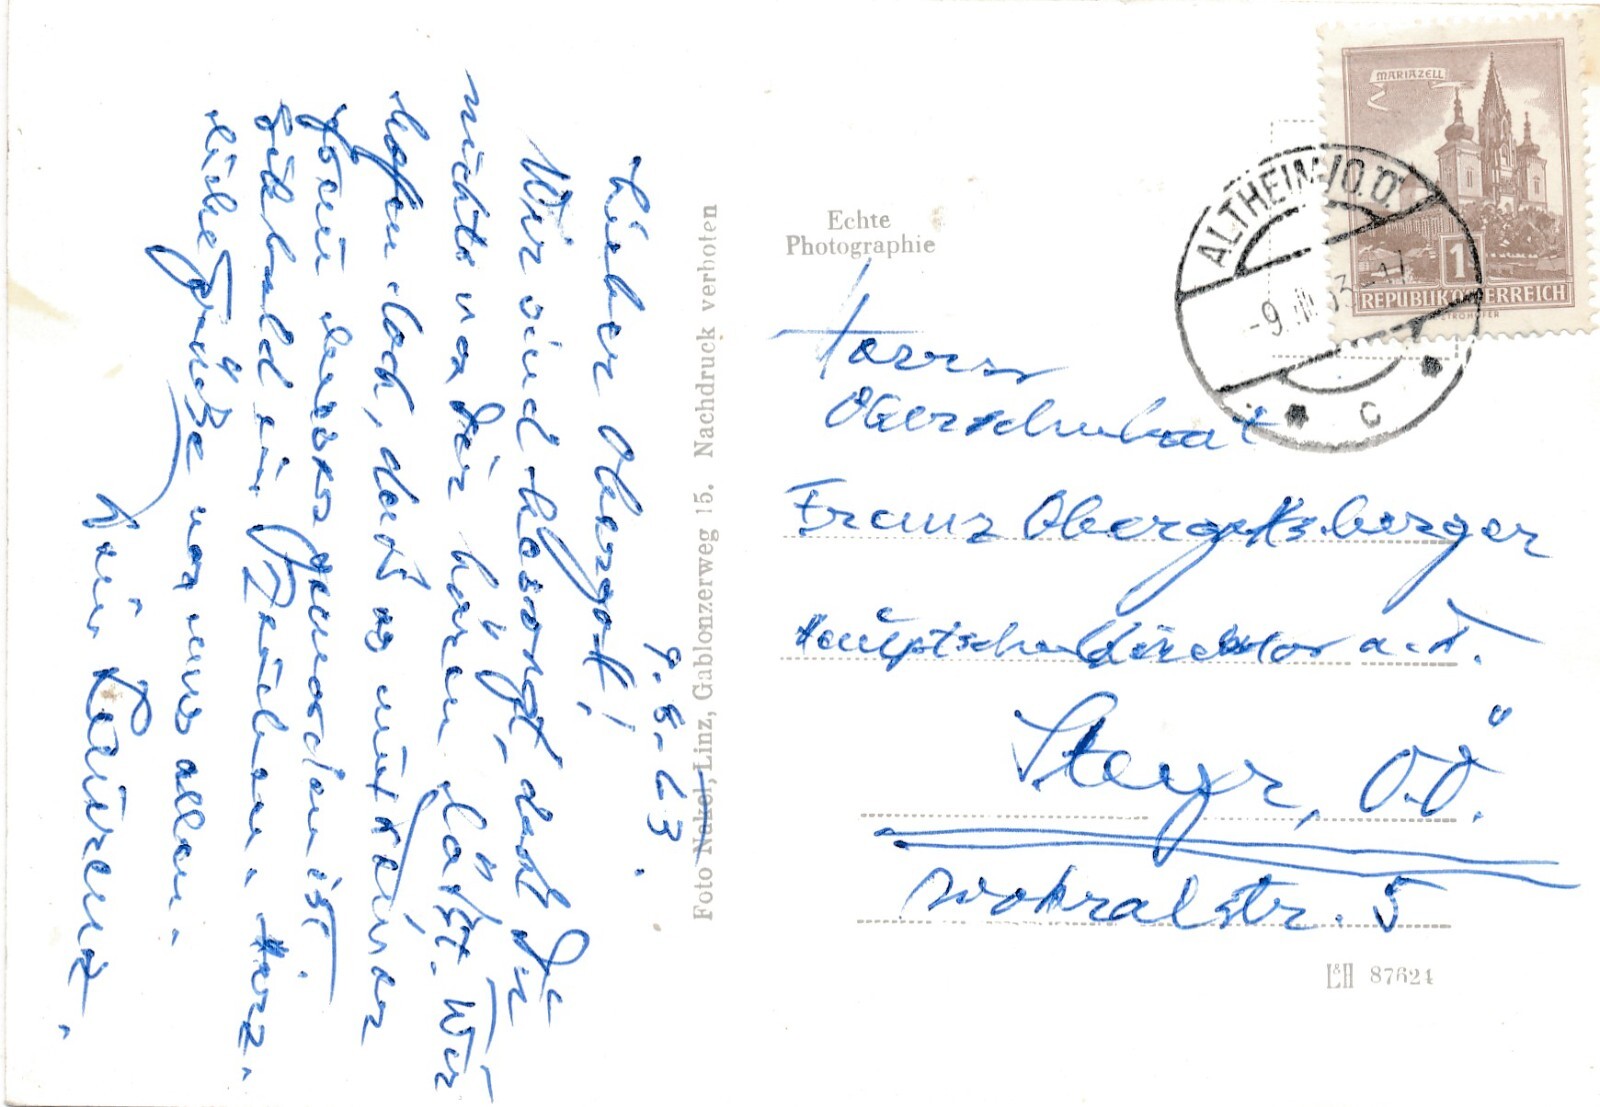 9.8.63.
Lieber Obergott!
Wir sind besorgt, daß Du
nichts von Dir hören läßt. Wir
hofen doch, daß es mit Deiner
besser geworden ist.
Gib bald ein Zeichen. Herz-
liche Grüße von uns allen.
Dein Laurenz.
Foto Nakel, Linz, Gablonzerweg 15. Nachdruck verboten
Echte
Photographie
MARIAZELL
1
REPUBLIK ÖSTERREICH
ALTHEIM/O.Ö.
-9.
c
Herrn
Oberschulrat
Franz Obergottsberger
Hauptschuldirektor a. D.
Steyr, O.Ö.
Wokralstr. 5
L&H 87624